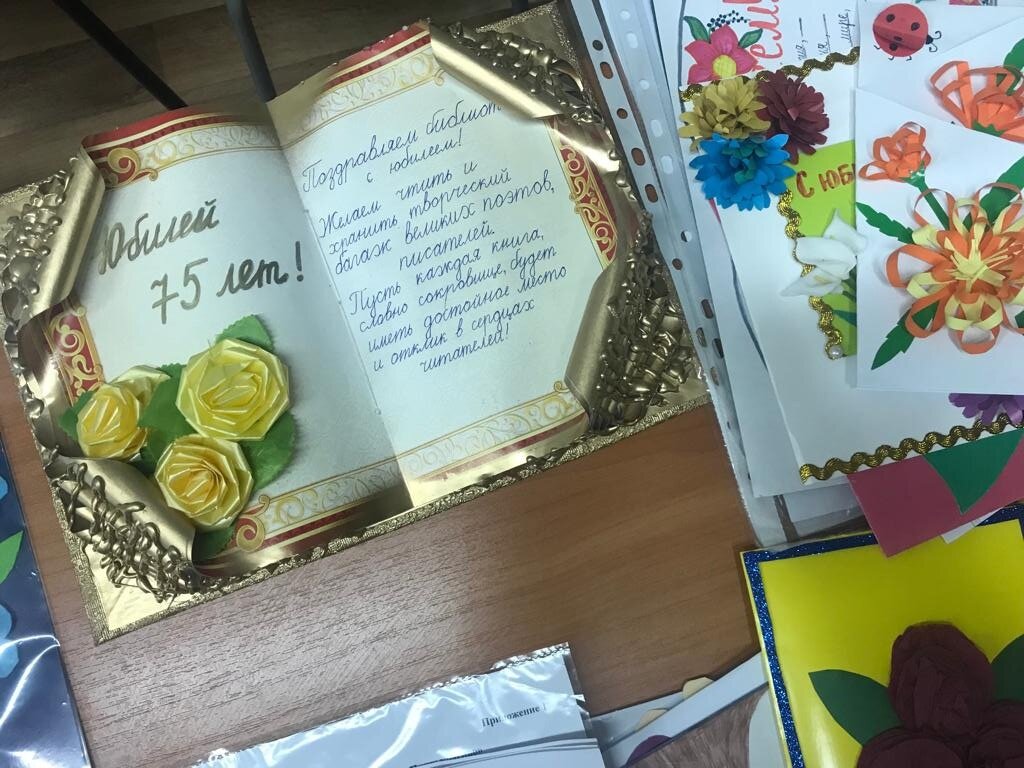 Юбилей
75 лет!
Поздравляем библиот
с юбилеем!
Желаем чтить и
хранить творческий
багаж великих поэтов,
писателей.
Пусть каждая книга,
словно сокровище, будет
иметь достойное место
и отклик в сердцах
читателей!
С ЮБ
мире,
Приложение 1